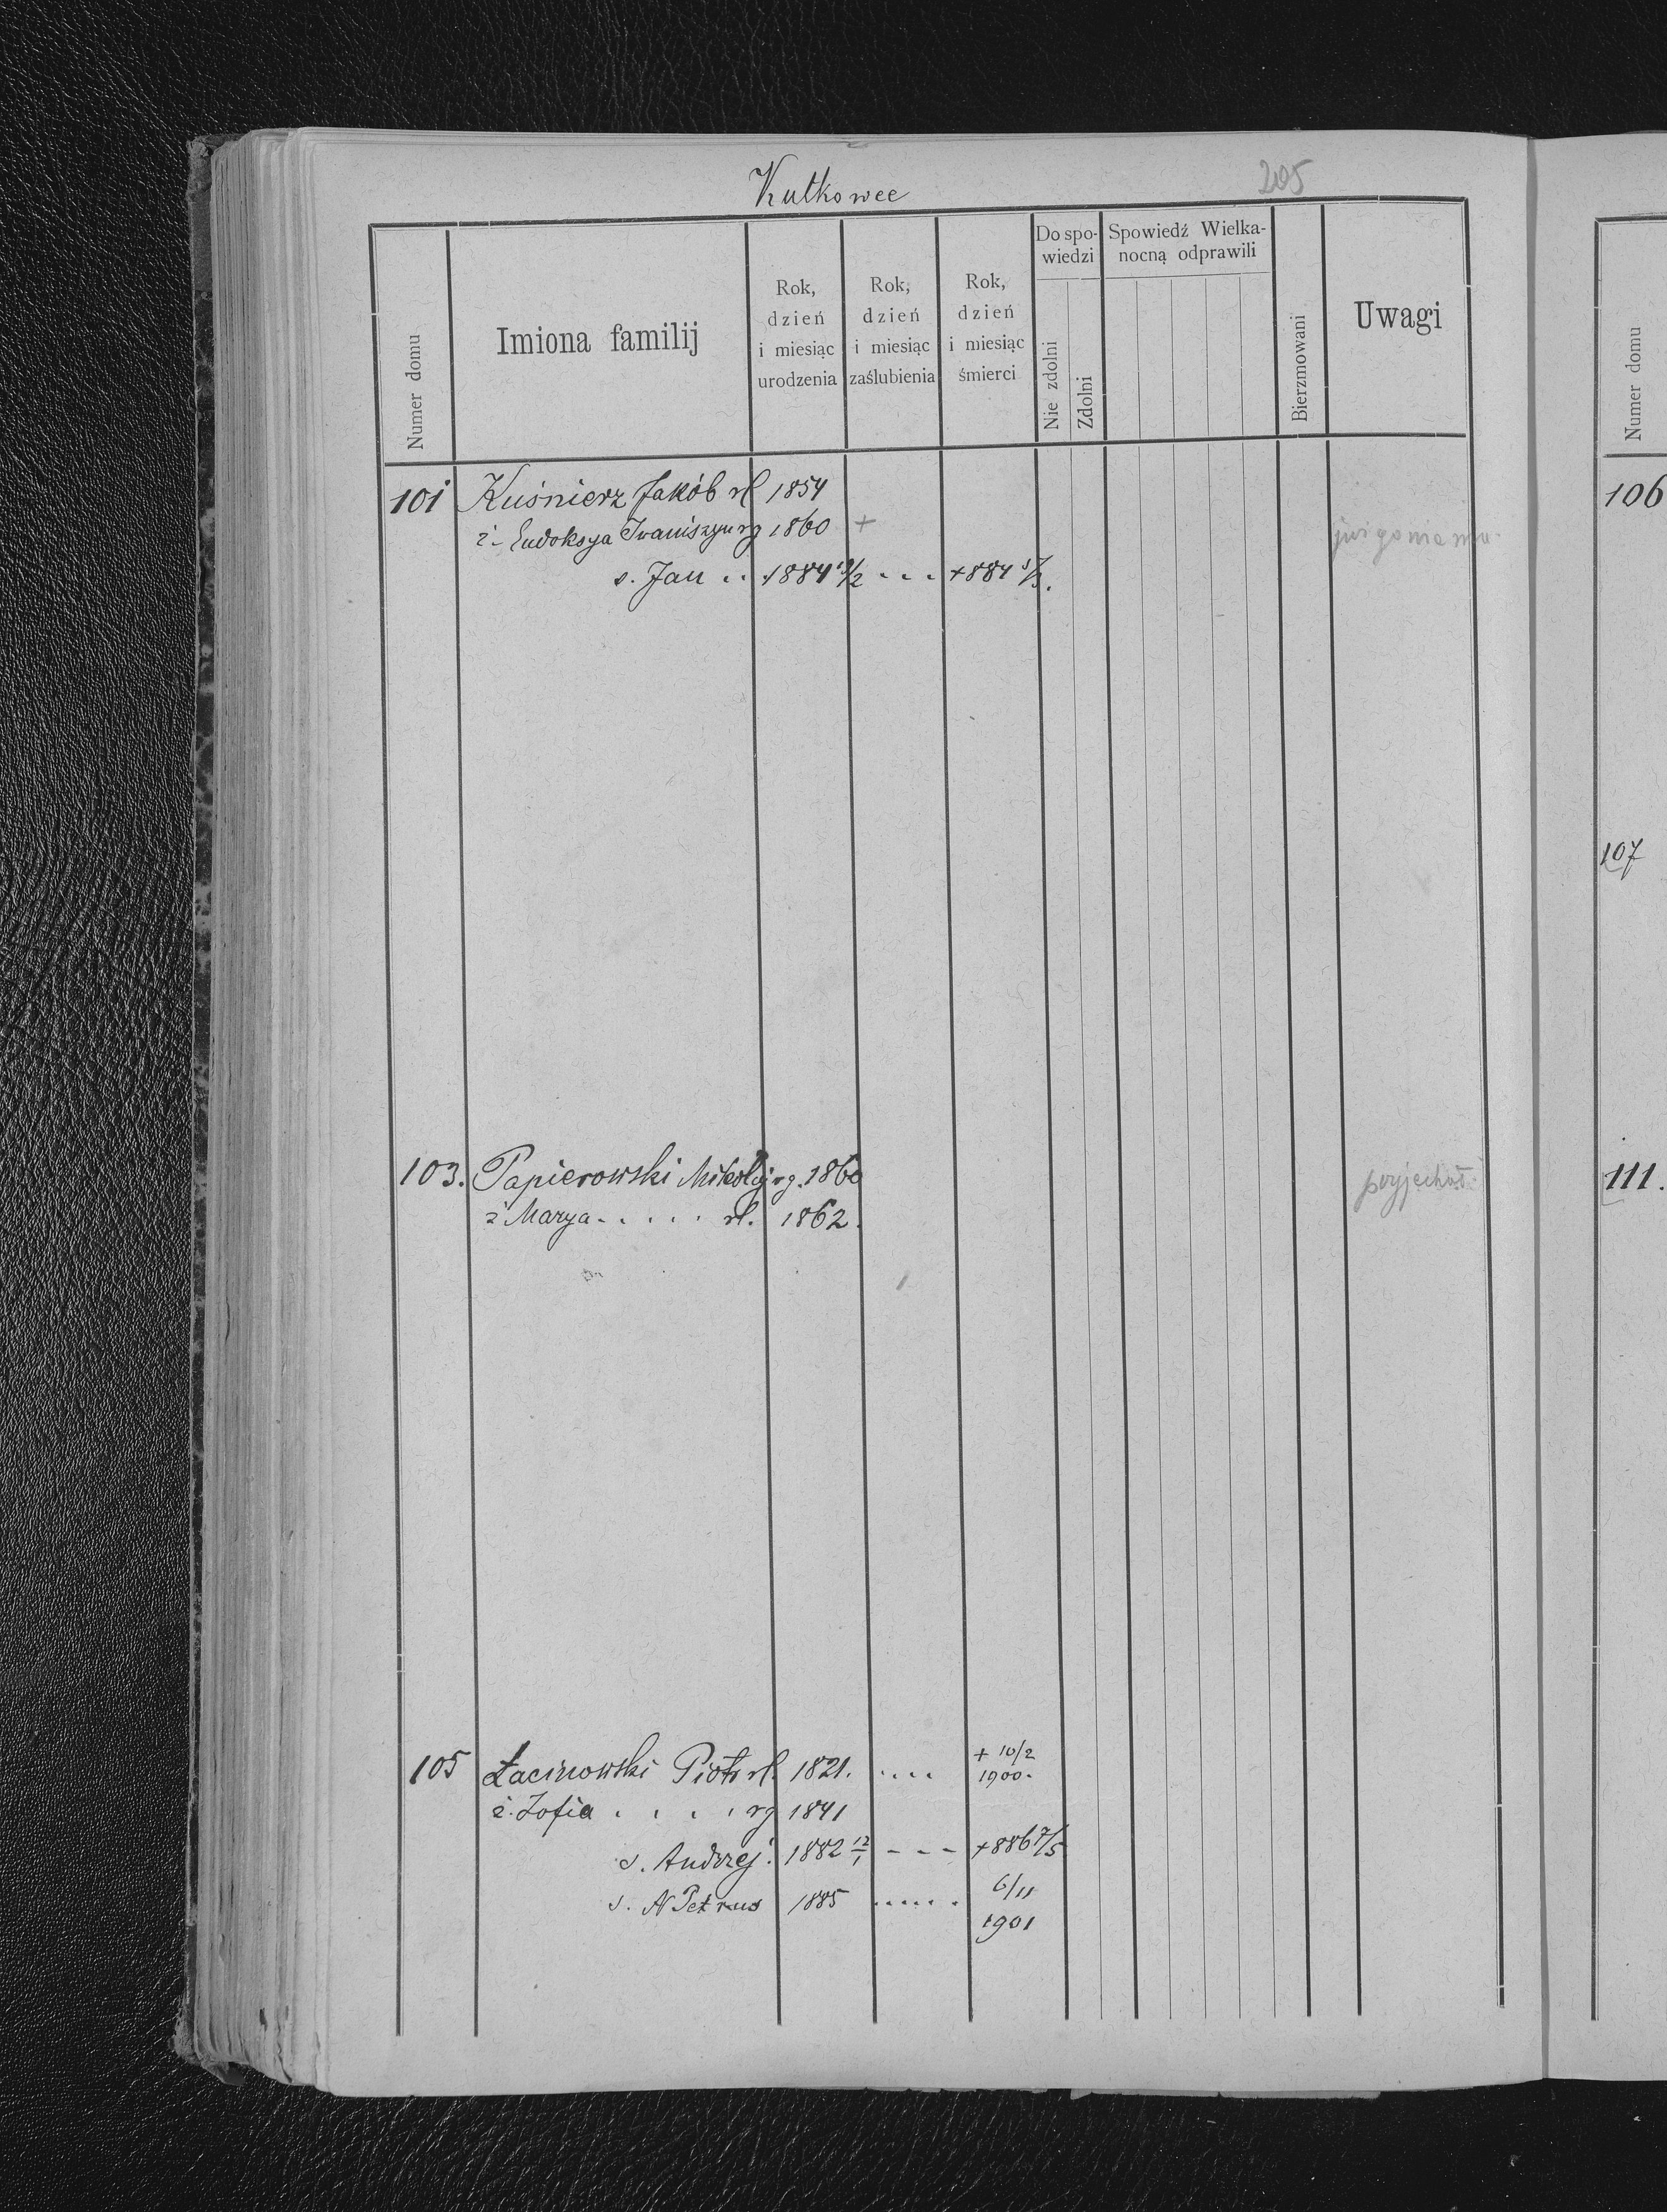 Kutkowce
205
Numer domu
Imiona familij
Rok, dzień i miesiąc urodzenia
Rok, dzień i miesiąc zaślubienia
Rok, dzień i miesiąc śmierci
Do spowiedzi
Nie zdolni
Zdolni
Spowiedź Wielkanocną odprawili
Bierzmowani
Uwagi
101 Kuśnierz Jakób rł 1854
ż. Eudoksya Iwaniszyn rg 1860 +
s. Jan .. 1884 19/2 ... +884 5/3.
103. Papierowski Mikołaj rg. 1860
ż Marya ..... rł. 1862.
105 Łacinowski Piotr rł. 1821. .... + 10/2 1900.
ż. Zofia .... rg 1841
s. Andrzej. 1882 12/1 --- +886 7/5
s. N Petrus 1885 ..... 6/11 1901
Numer domu
106
107
111.